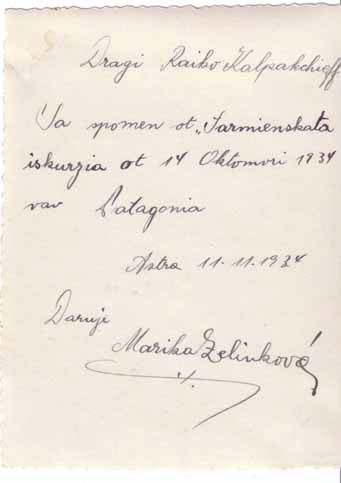 Dragi Raiko Kalpakchieff
Za spomen ot „Sarmienskata
iskurzia ot 14 Oktomvri 1934
vav Patagonia
Astra 11-11-1934
Daruje
Marika Zelinková